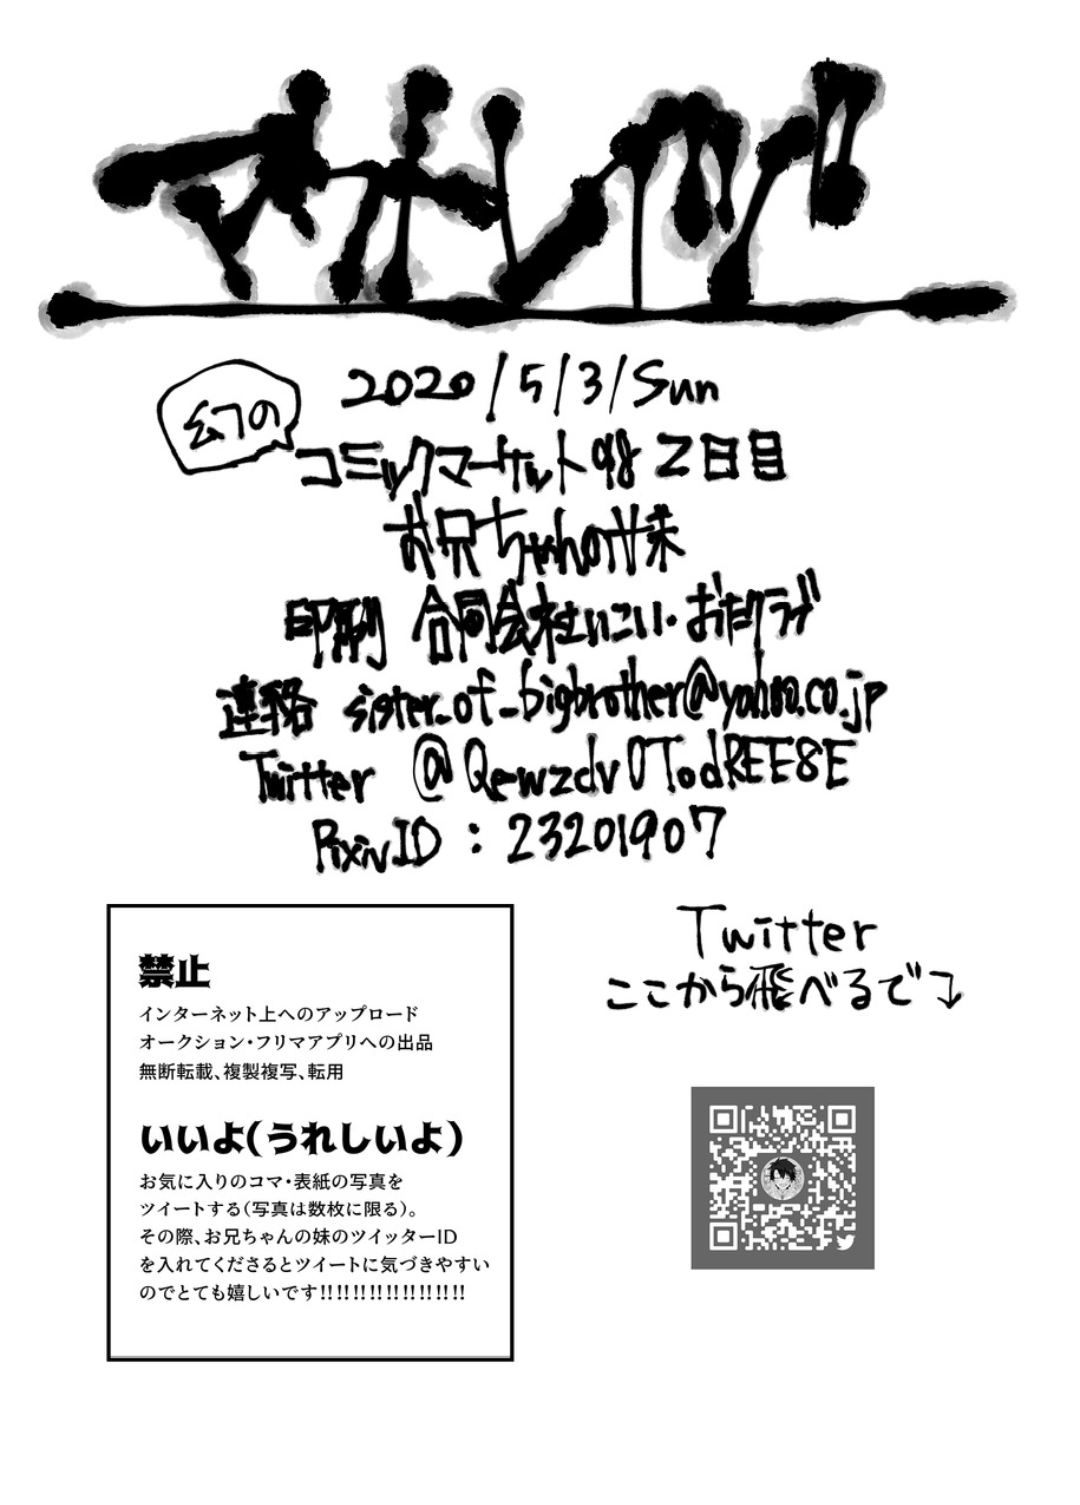 マオトレッグ
2020/5/3/Sun
幻の
コミックマーケット98 2日目
お兄ちゃんの妹
印刷 合同会社いこい・おたクラブ
連絡 sister_of_bigbrother@yahoo.co.jp
Twitter @Qewzdv0TodREE8E
PixivID：23201907
禁止
インターネット上へのアップロード
オークション・フリマアプリへの出品
無断転載、複製複写、転用
いいよ(うれしいよ)
お気に入りのコマ・表紙の写真を
ツイートする(写真は数枚に限る)。
その際、お兄ちゃんの妹のツイッターID
を入れてくださるとツイートに気づきやすい
のでとても嬉しいです!!!!!!!!!!!!!!!!!!
Twitter
ここから飛べるで